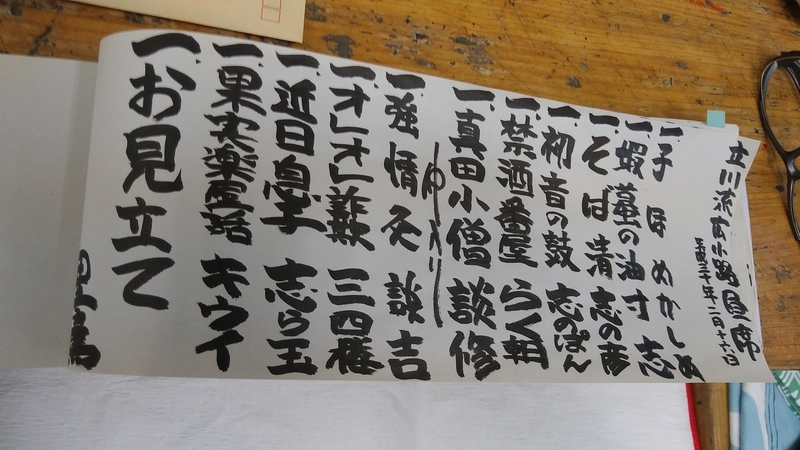 立川流広小路昼席
平成三十年二月十六日
一、子ほめ かしめ
一、蝦蟇の油 寸志
一、そば清 志の彦
一、初音の鼓 志のぽん
一、禁酒番屋 らく朝
一、真田小僧 談修
仲入り
一、強情灸 談吉
一、オレオレ詐欺 三四楼
一、近日息子 志ら玉
一、果実楽屋話 キウイ
一、お見立て
里馬